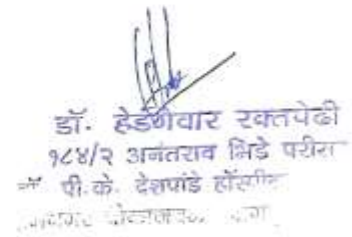 डॉ. हेडगेवार रक्तपेढी
१८४/२ अनंतराव भिडे परीसर
पी.के. देशपांडे हॉस्पीटल